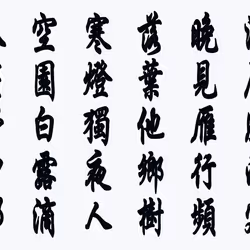 晚見雁行頻
落葉他鄉樹
寒燈獨夜人
空園白露滴